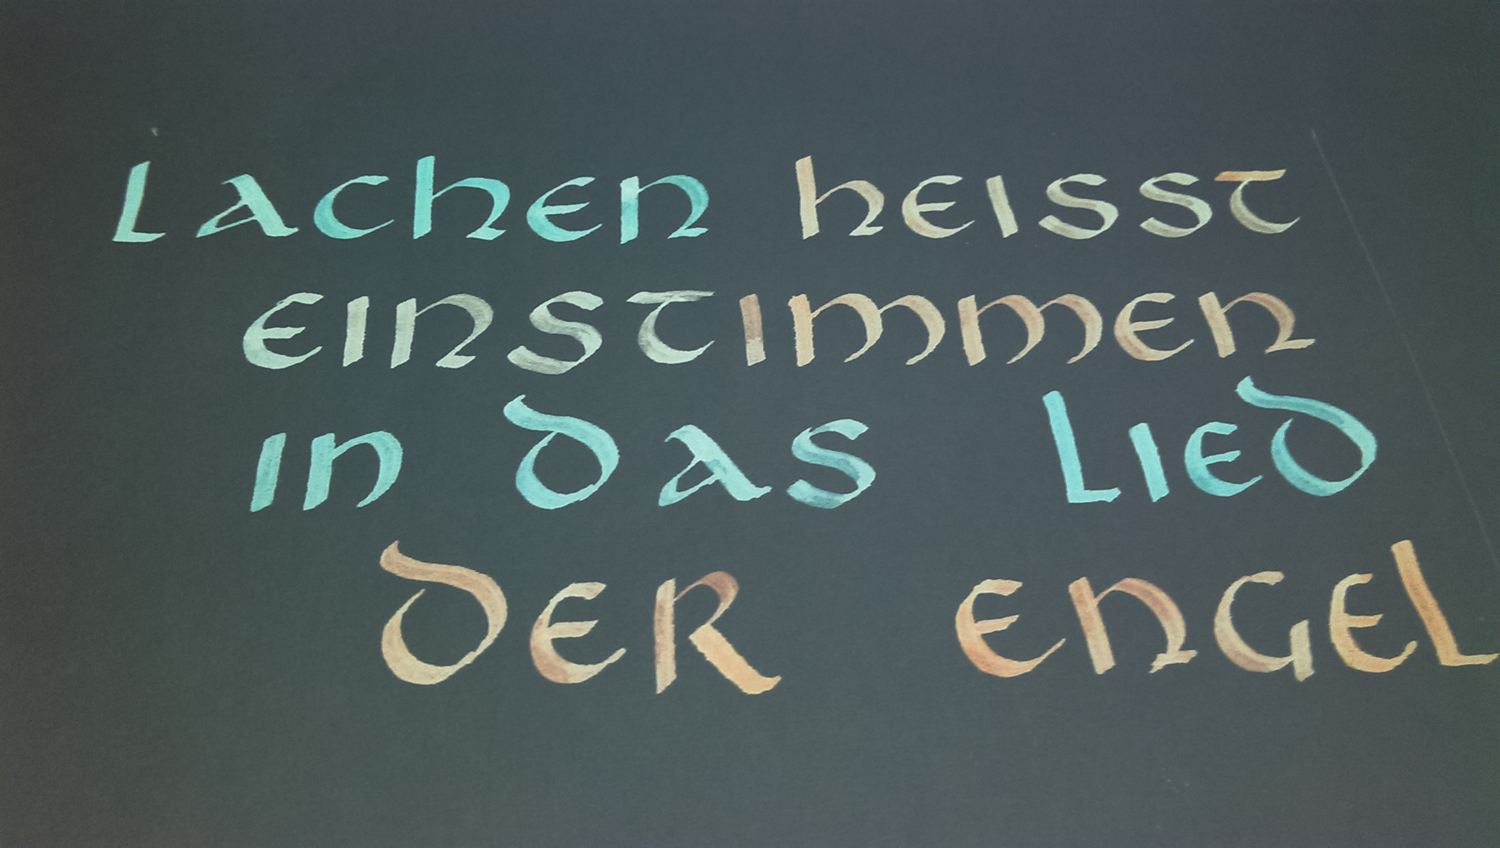 LACHEN HEISST
EINSTIMMEN
IN DAS LIED
DER ENGEL